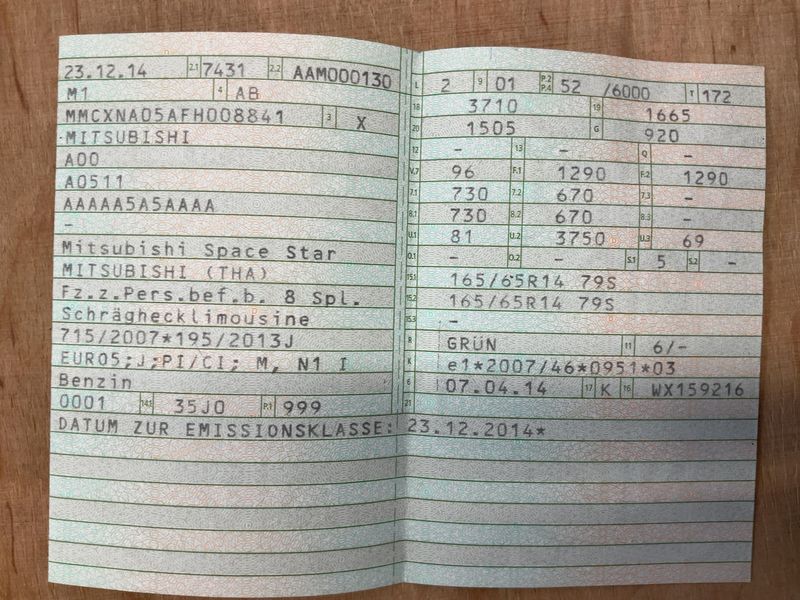 23.12.14 2.1 7431 2.2 AAM000130
M1 4 AB
MMCXNA05AFH008841 3 X
MITSUBISHI
A00
A0511
AAAAA5A5AAAA
-
Mitsubishi Space Star
MITSUBISHI (THA)
Fz.z.Pers.bef.b. 8 Spl.
Schräghecklimousine
715/2007*195/2013J
EURO5;J;PI/CI; M, N1 I
Benzin
0001 14.1 35J0 P.1 999
DATUM ZUR EMISSIONSKLASSE: 23.12.2014*
L 2 9 01 P.2 P.4 52 /6000 T 172
18 3710 19 1665
20 1505 G 920
12 - 13 - Q -
V.7 96 F.1 1290 F.2 1290
7.1 730 7.2 670 7.3 -
8.1 730 8.2 670 8.3 -
U.1 81 U.2 3750 U.3 69
O.1 - O.2 - S.1 5 S.2 -
15.1 165/65R14 79S
15.2 165/65R14 79S
15.3 -
R GRÜN 11 6/-
K e1*2007/46*0951*03
6 07.04.14 17 K 16 WX159216
21